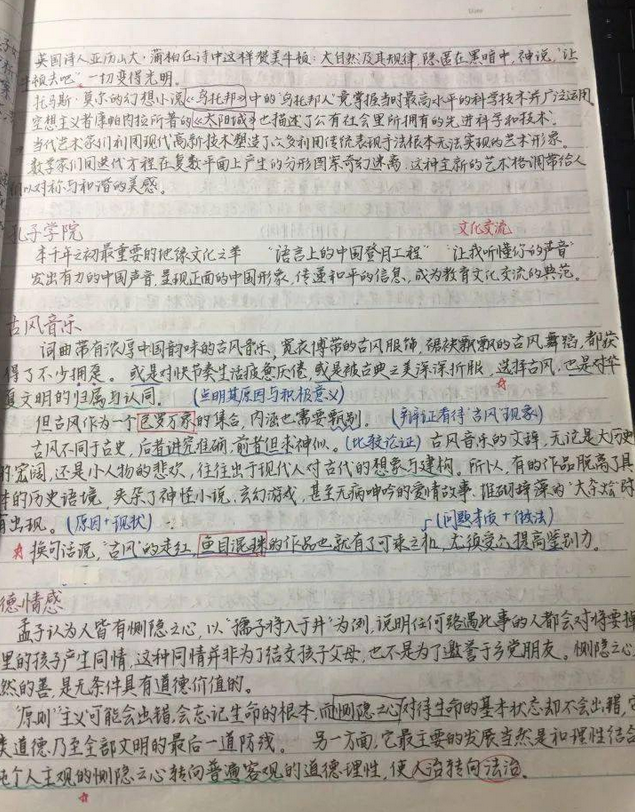 英国诗人亚历山大·蒲柏在诗中这样赞美牛顿：大自然及其规律，隐匿在黑暗中，神说，"让
牛顿去吧"，一切变得光明。
托马斯·莫尔的幻想小说《乌托邦》中的"乌托邦人"竟掌握当时最高水平的科学技术并广泛运用。
空想主义者康帕内拉所著的《太阳城》也描述了公有社会里所拥有的先进科学和技术。
当代艺术家们利用现代高新技术塑造了众多利用传统表现手法根本无法实现的艺术形象。
数学家们用迭代方程在复数平面上产生的分形图案奇幻迷离，这种全新的艺术格调带给人
以对称与和谐的美感。
孔子学院
文化交流
本千年之初最重要的地缘文化之举 "语言上的中国登月工程" "让我听懂你的声音"
发出有力的中国声音，呈现正面的中国形象，传递和平的信息，成为教育文化交流的典范。
古风音乐
词曲带有浓厚中国韵味的古风音乐，宽衣博带的古风服饰，裙袂飘飘的古风舞蹈，都获
得了不少拥趸。或是对快节奏生活疲惫厌倦，或是被古典之美深深折服，选择古风，也是对华
夏文明的归属与认同。（点明其原因与积极意义）
但古风作为一个包罗万象的集合，内涵也需要甄别。（辩证看待"古风"现象）
古风不同于古史，后者讲究准确，前者但求神似。（比较论证）古风音乐的文辞，无论是大历史
的宏阔，还是小人物的悲欢，往往出于现代人对古代的想象与建构。所以，有的作品脱离了具
体的历史语境，夹杂了神怪小说、玄幻游戏，甚至无病呻吟的爱情故事，堆砌辞藻的"大杂烩"时
有出现。（原因+现状） （问题本质+做法）
换句话说，"古风"的走红，鱼目混珠的作品也就有了可乘之机，尤须受众提高鉴别力。
德情感
孟子认为人皆有恻隐之心，以"孺子将入于井"为例，说明任何路遇此事的人都会对将要掉
里的孩子产生同情，这种同情并非为了结交孩子父母，也不是为了邀誉于乡党朋友。恻隐之心
然的善，是无条件具有道德价值的。
"原则"主义可能会出错，会忘记生命的根本，而恻隐之心对待生命的基本状态却不会出错，它
类道德乃至全部文明的最后一道防线。 另一方面，它最主要的发展当然是和理性结合
纯个人主观的恻隐之心转向普遍客观的道德理性，使人治转向法治。